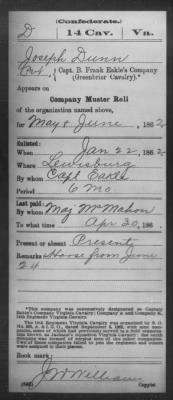 (Confederate.)
D 14 Cav. Va.
Joseph Dunn
Pvt, Capt. B. Frank Eakle's Company
(Greenbrier Cavalry).*
Appears on
Company Muster Roll
of the organization named above,
for May & June, 1862
Enlisted:
When Jan 22, 1862
Where Lewisburg
By whom Capt Eakle
Period 6 mo
Last paid:
By whom Maj McMahon
To what time Apr 30, 186
Present or absent Present
Remarks: Horse from June
24
*This company was successively designated as Captain
Eakle's Company Virginia Cavalry; Company
14th Regiment Virginia Cavalry.
The 14th Regiment Virginia Cavalry was organized by S. O.
Book mark:
J W Williams
(642) Copyist.